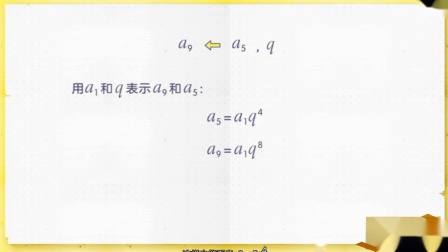 a₉ ⇐ a₅ , q
用a₁和q表示a₉和a₅:
a₅=a₁q⁴
a₉=a₁q⁸